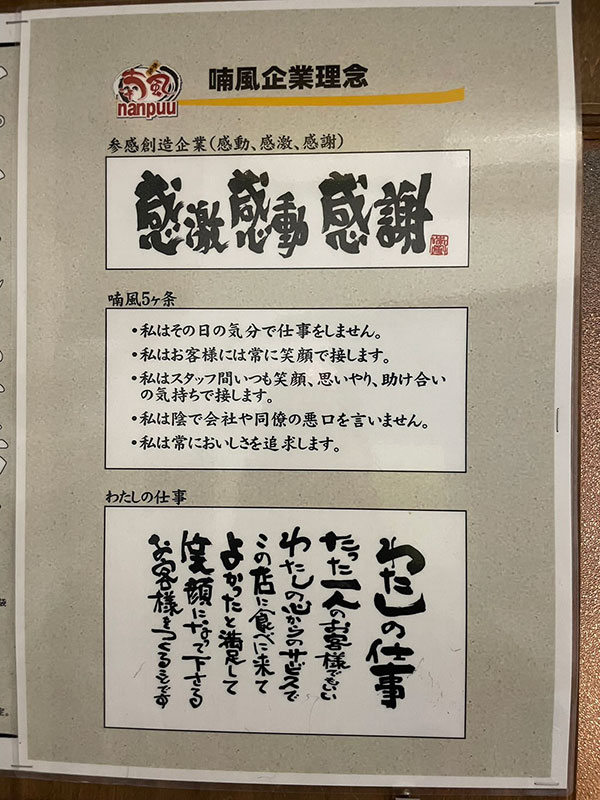 南風
nanpuu
喃風企業理念
参感創造企業(感動、感激、感謝)
感激 感動 感謝
喃風5ヶ条
・私はその日の気分で仕事をしません。
・私はお客様には常に笑顔で接します。
・私はスタッフ間いつも笑顔、思いやり、助け合い
の気持ちで接します。
・私は陰で会社や同僚の悪口を言いません。
・私は常においしさを追求します。
わたしの仕事
わたしの仕事
たった一人のお客様でもいい
わたしの心からのサービスで
この店に食べに来て
よかったと満足して
笑顔になって下さる
お客様をつくることです
袋
定。